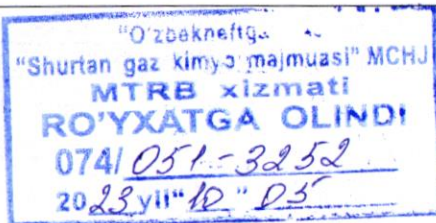 "O'zbekneftga
"Shurtan gaz kimyo majmuasi" MCHJ
MTRB xizmati
RO'YXATGA OLINDI
074/ 051-3252
2023 yil "10" 05